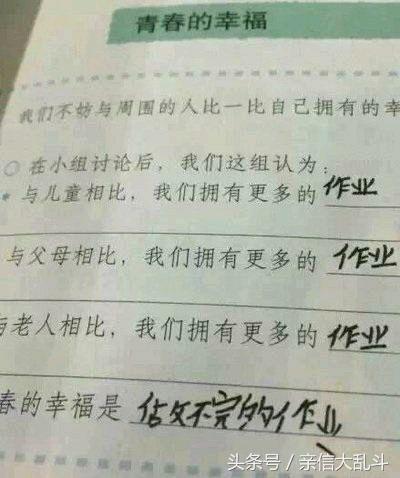 青春的幸福
我们不妨与周围的人比一比自己拥有的幸
○ 在小组讨论后，我们这组认为：
* 与儿童相比，我们拥有更多的 作业
与父母相比，我们拥有更多的 作业
与老人相比，我们拥有更多的 作业
春的幸福是 估文不完的作业
头条号／亲信大乱斗